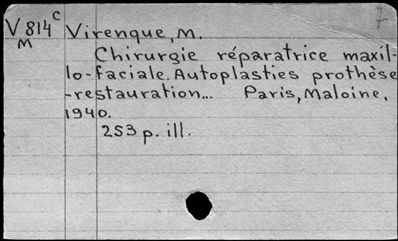 V814c Virenque, M.
M
Chirurgie réparatrice maxil-
lo-faciale. Autoplasties prothèse
-restauration... Paris, Maloine,
1940.
253 p. ill.